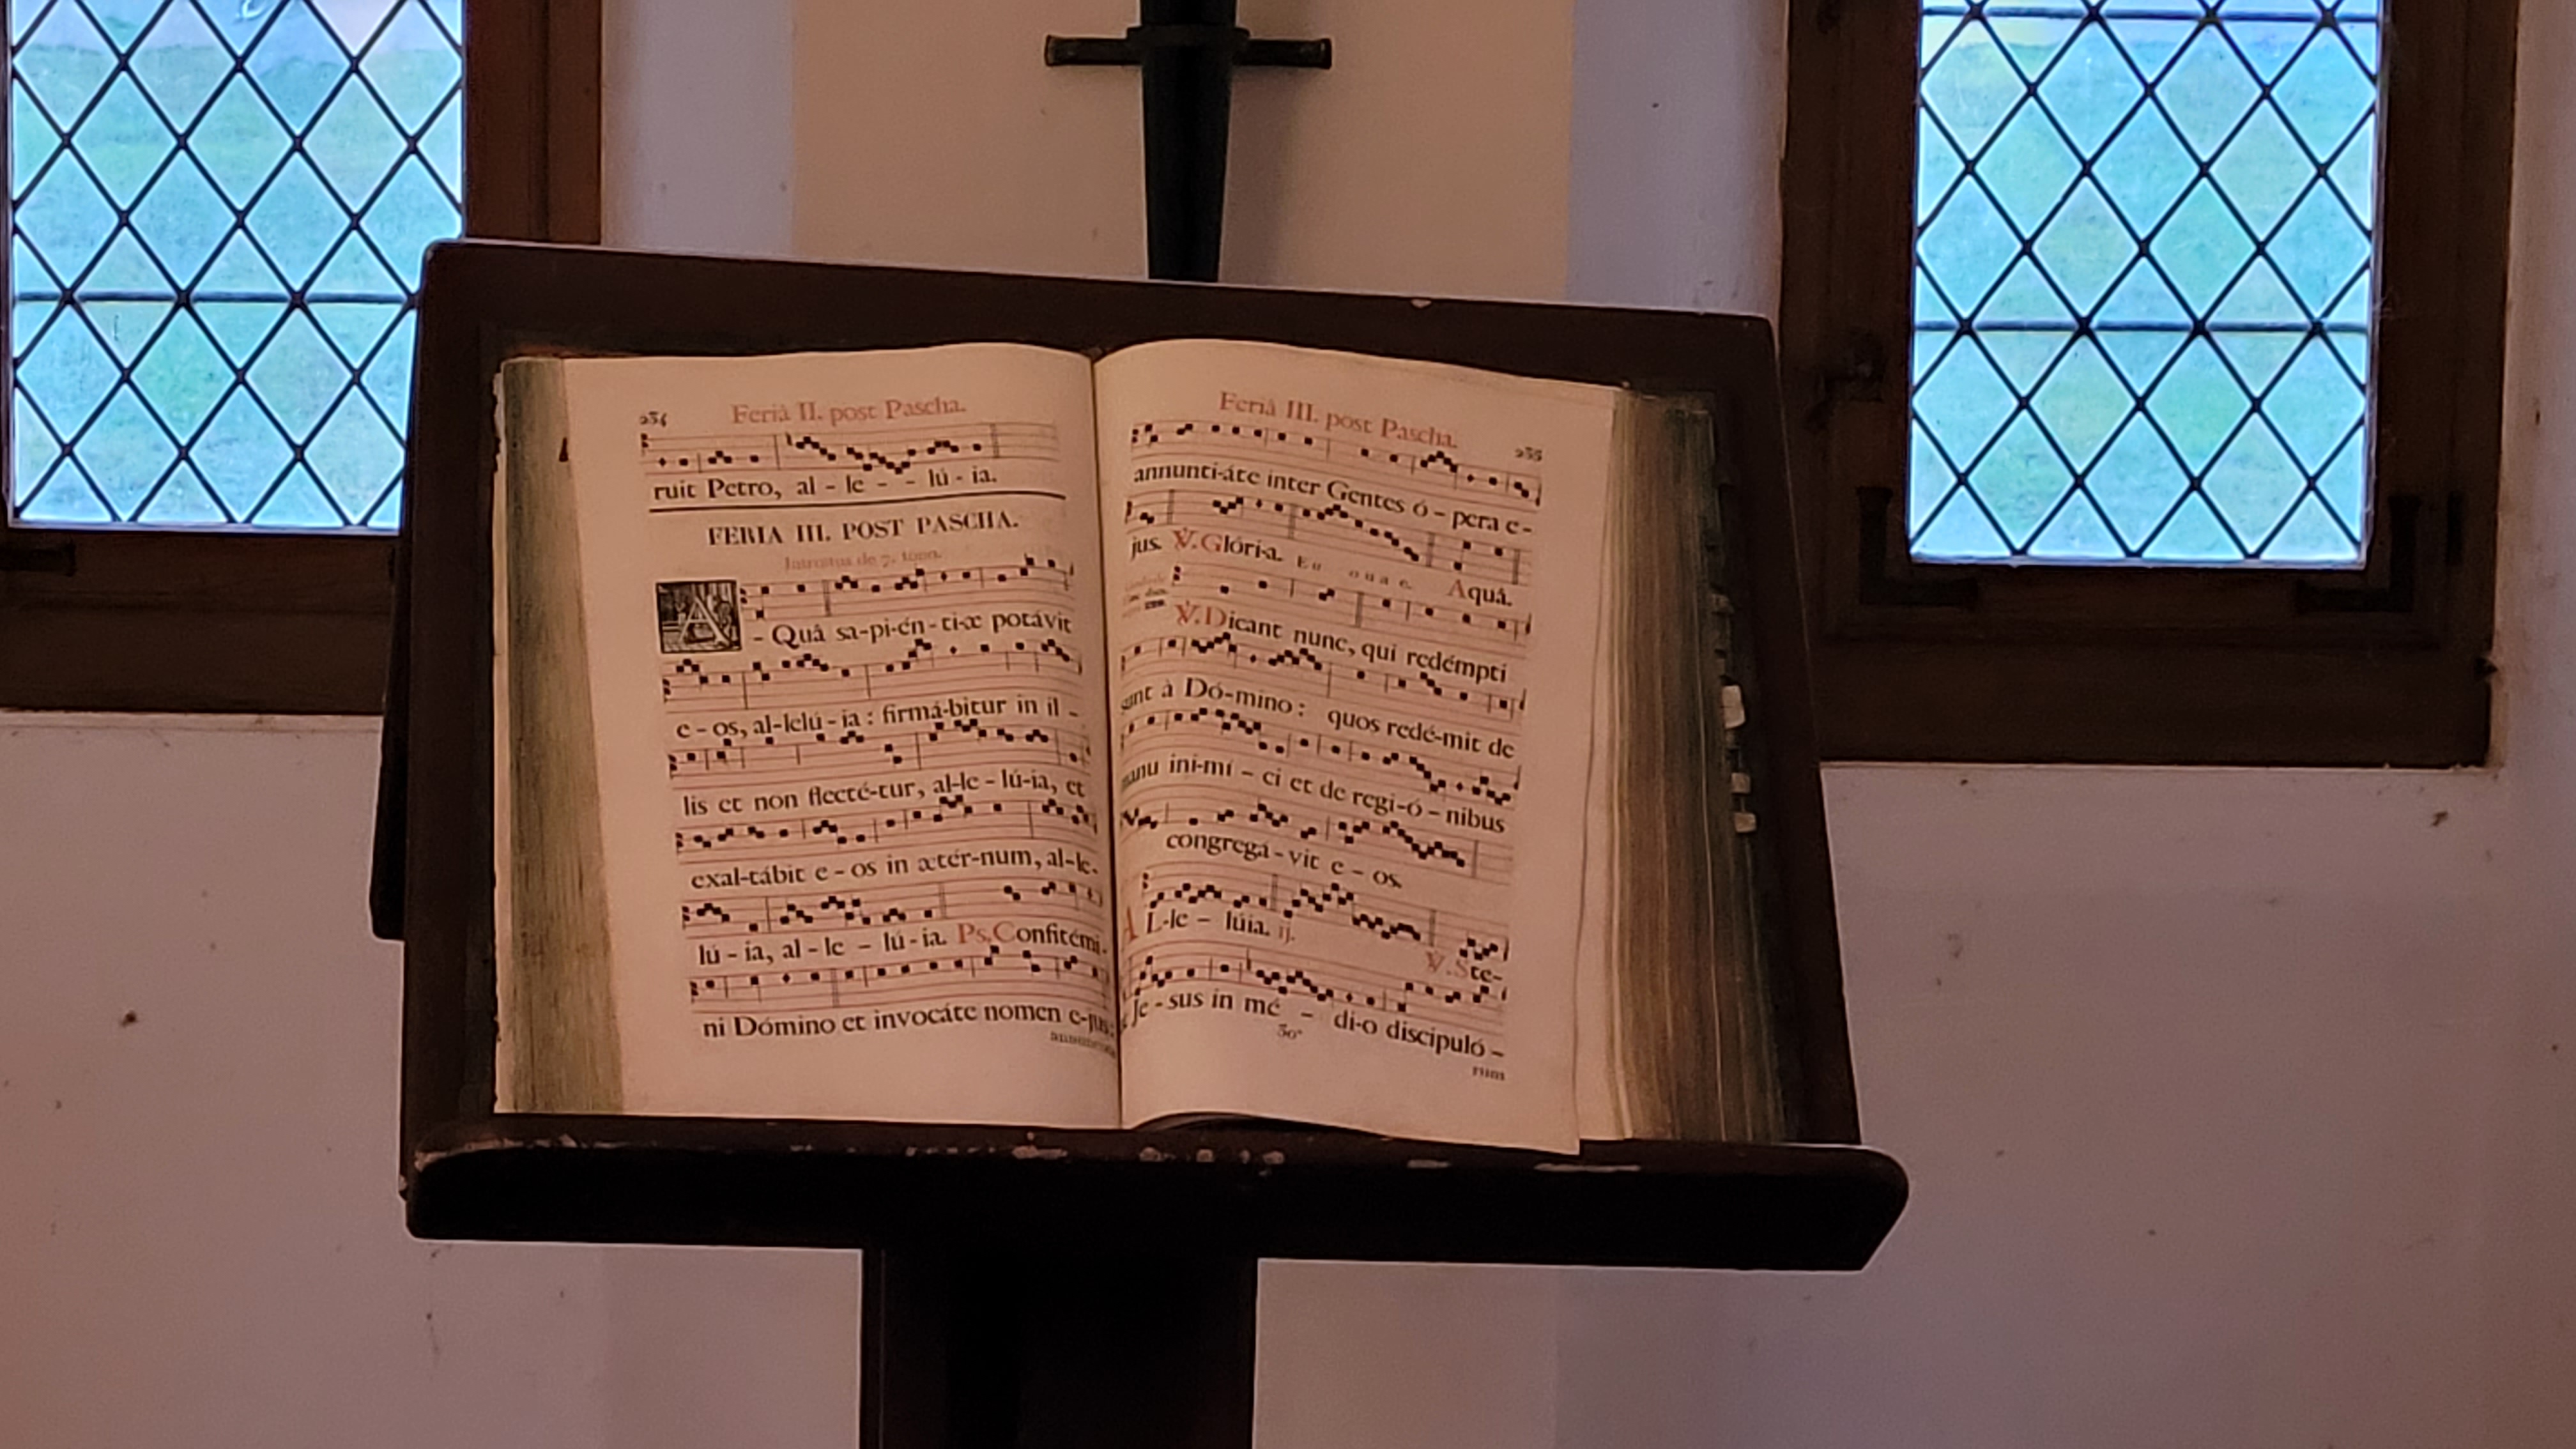 234 Feriâ II. post Pascha.
ruit Petro, al - le - - lú - ia.
FERIA III. POST PASCHA.
Introitus de 7. tono.
A - Quâ sa-pi-én-ti-æ potávit
e - os, al-lelú - ia : firmá-bitur in il -
lis et non flecté-tur, al-le - lú-ia, et
exal-tábit e - os in ætér-num, al-le-
lú - ia, al - le - lú - ia. Ps. Confitémi-
ni Dómino et invocáte nomen e-jus:
Feriâ III. post Pascha. 235
annunti-áte inter Gentes ó - pera e -
jus. ℣. Glóri-a. E u o u a e. Aquâ.
℣. Dicant nunc, qui redémpti
sunt à Dó-mino : quos redé-mit de
manu ini-mí - ci et de regi-ó - nibus
congregá - vit e - os.
AL-le - lúia. ij. ℣. Ste-
Je - sus in mé - di-o discipuló -
30*
rum